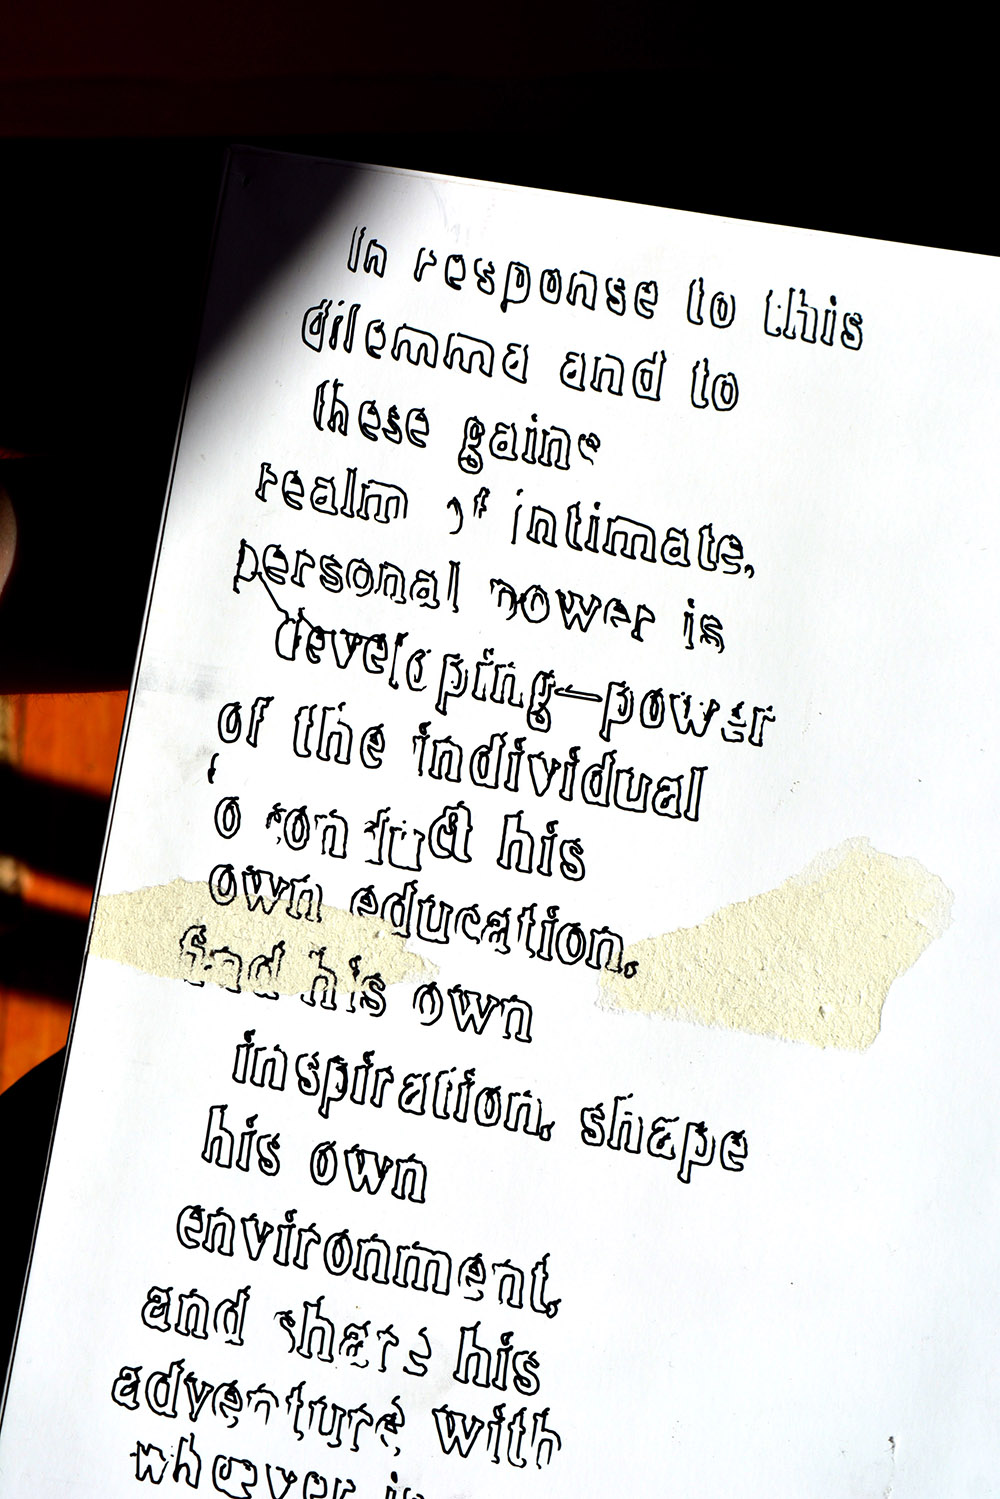 In response to this
dilemma and to
these gains
realm of intimate,
personal power is
developing—power
of the individual
to conduct his
own education,
find his own
inspiration, shape
his own
environment,
and share his
adventure with
whoever is